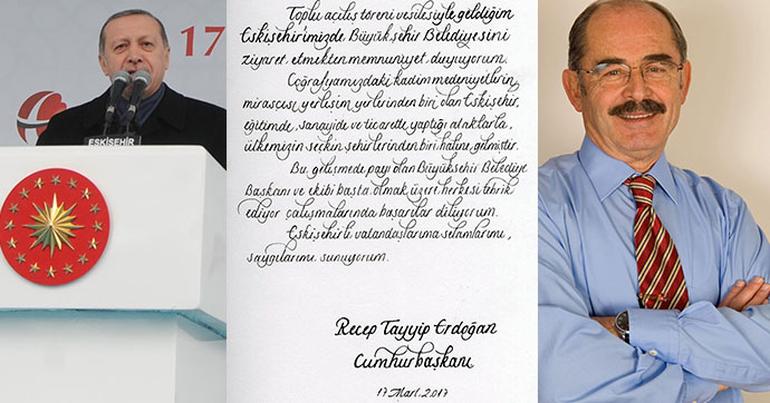 17
ESKİŞEHİR
Toplu açılış töreni vesilesiyle geldiğim
Eskişehir'imizde Büyükşehir Belediyesini
ziyaret etmekten memnuniyet duyuyorum.
Coğrafyamızdaki kadim medeniyetlerin
mirasçısı yerleşim yerlerinden biri olan Eskişehir,
eğitimde, sanayide ve ticarette yaptığı ataklarla,
ülkemizin seçkin şehirlerinden biri haline gelmiştir.
Bu gelişmede payı olan Büyükşehir Belediye
Başkanı ve ekibi başta olmak üzere herkesi tebrik
ediyor çalışmalarında başarılar diliyorum.
Eskişehirli vatandaşlarıma selamlarımı,
saygılarımı sunuyorum.
Recep Tayyip Erdoğan
Cumhurbaşkanı
17 Mart 2017